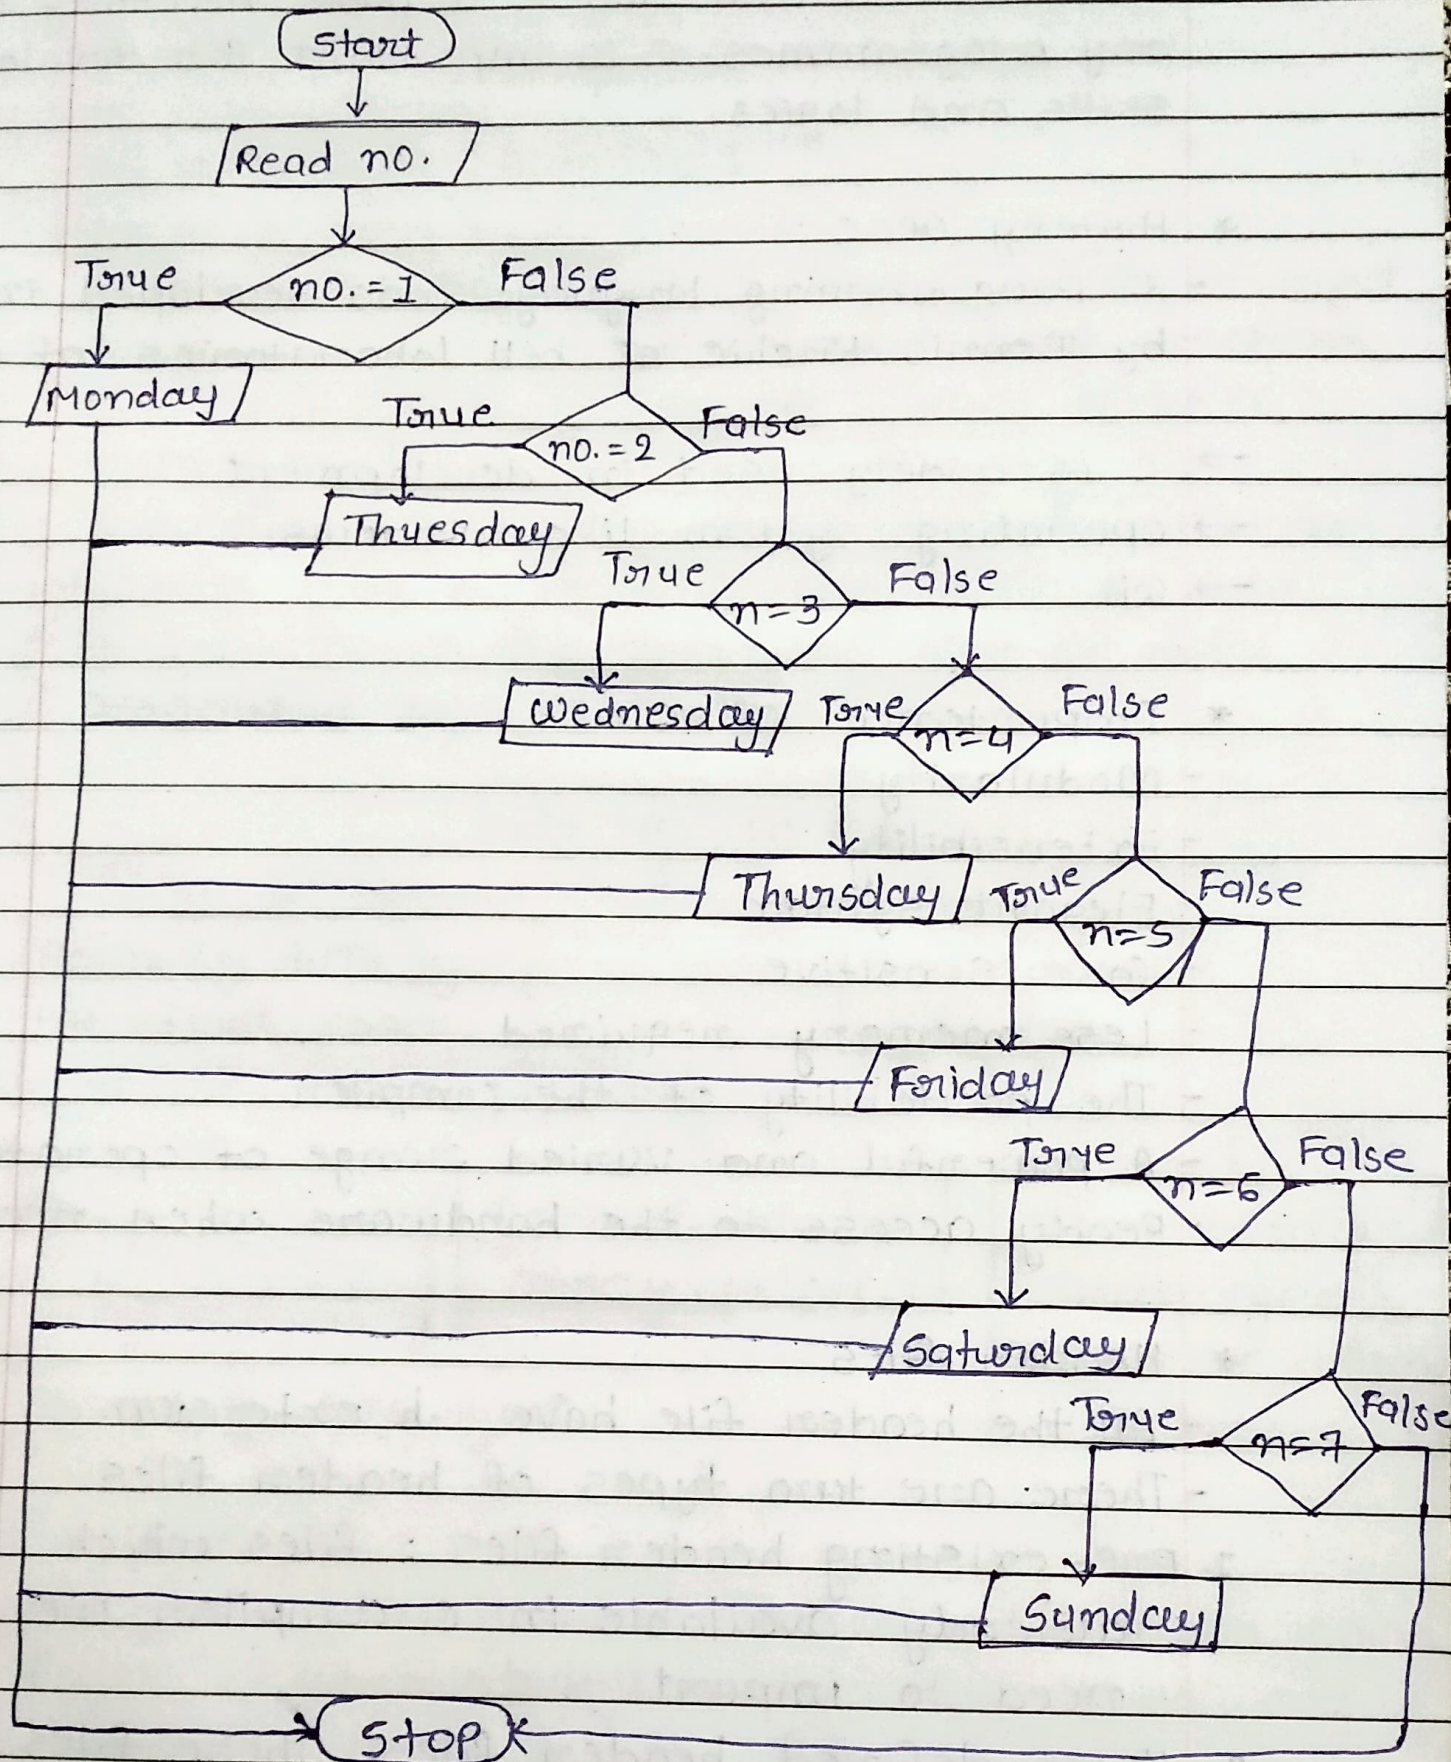 Start
Read no.
True no.=1 False
Monday
True no.=2 False
Thuesday
True n=3 False
Wednesday
True n=4 False
Thursday
True n=5 False
Friday
True n=6 False
Saturday
True n=7 False
Sunday
Stop